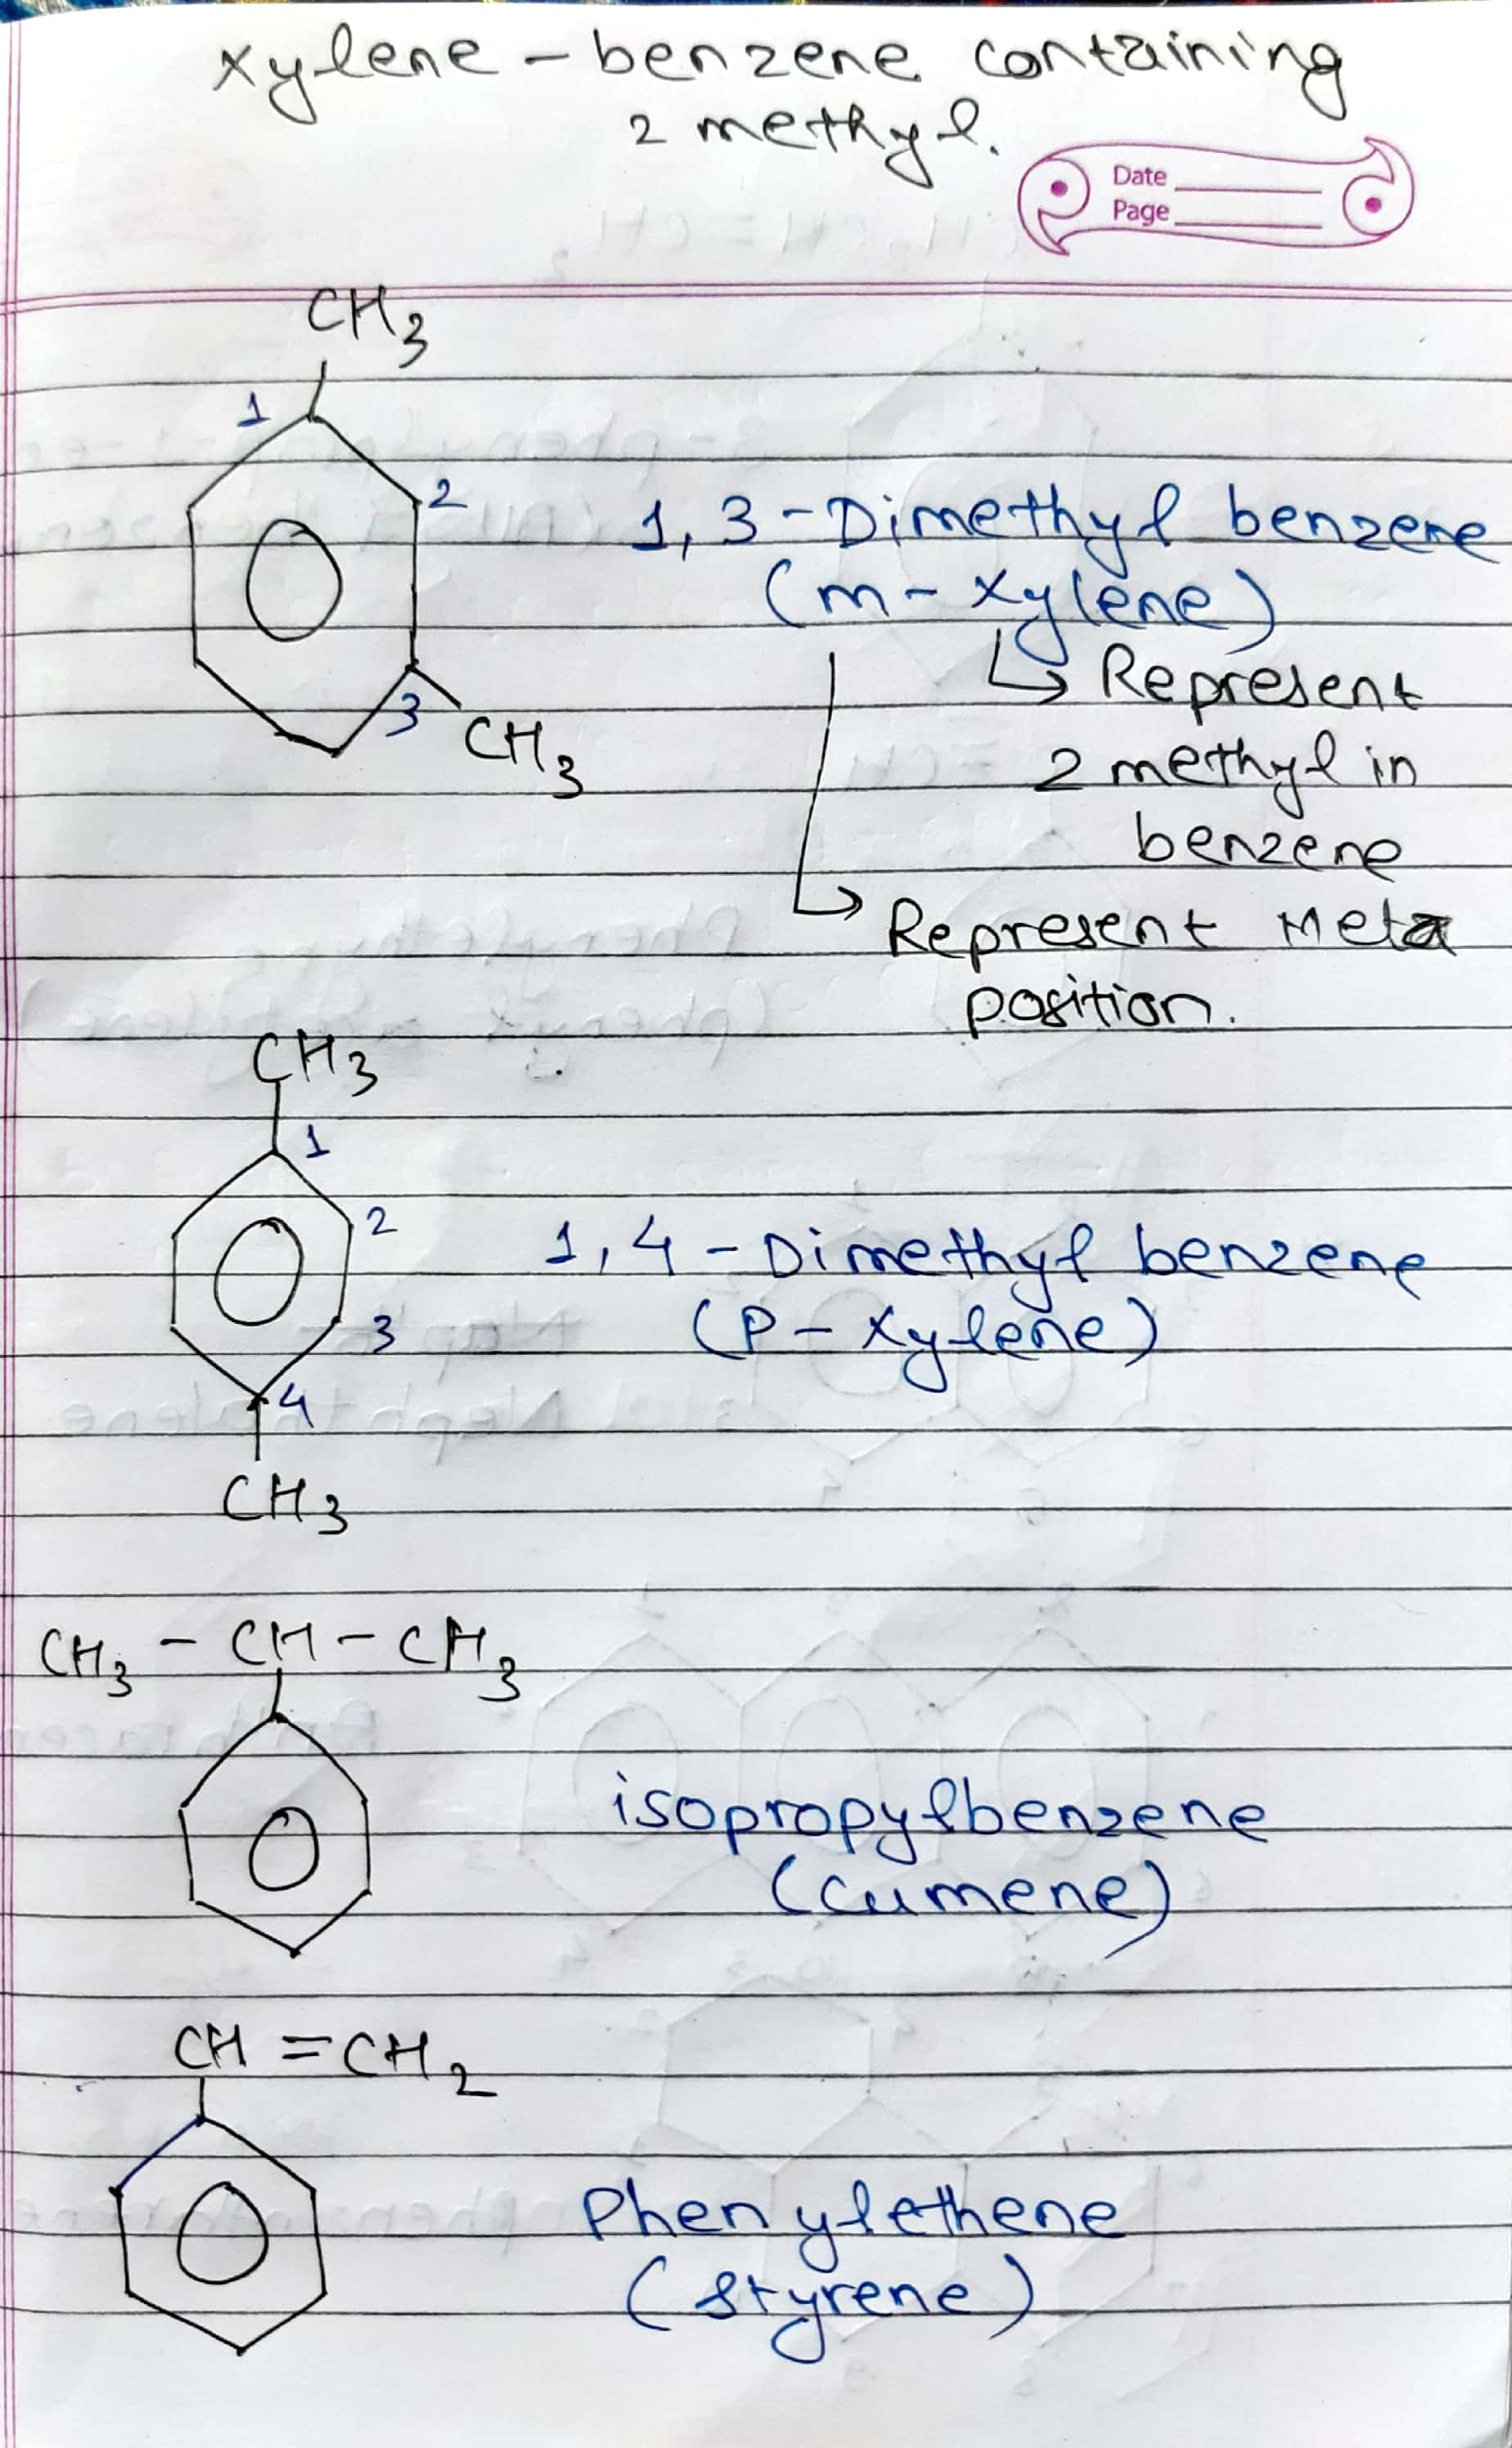 xylene - benzene containing
2 methyl.
Date
Page
CH3
1
2
1, 3 - Dimethyl benzene
(m - xylene)
Represent
3
CH3
2 methyl in
benzene
Represent Meta
position.
CH3
1
2
1, 4 - Dimethyl benzene
3
(P - xylene)
4
CH3
CH3 - CH - CH3
isopropylbenzene
(cumene)
CH = CH2
Phenylethene
(styrene)